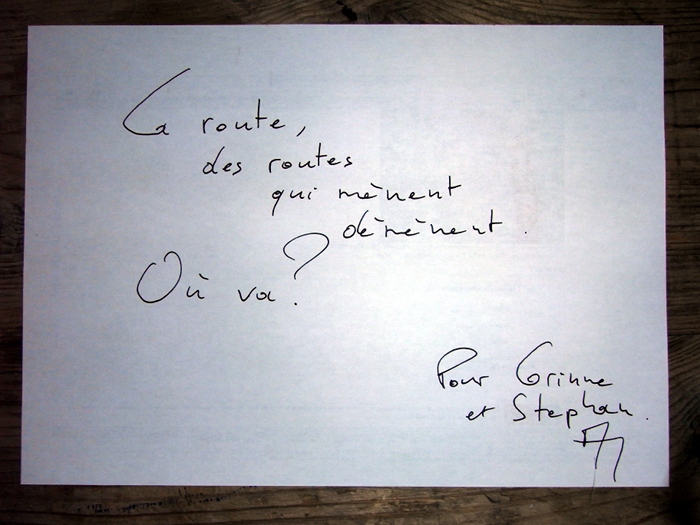 La route,
des routes
qui mènent
démènent.
Où va?
Pour Corinne
et Stephan.